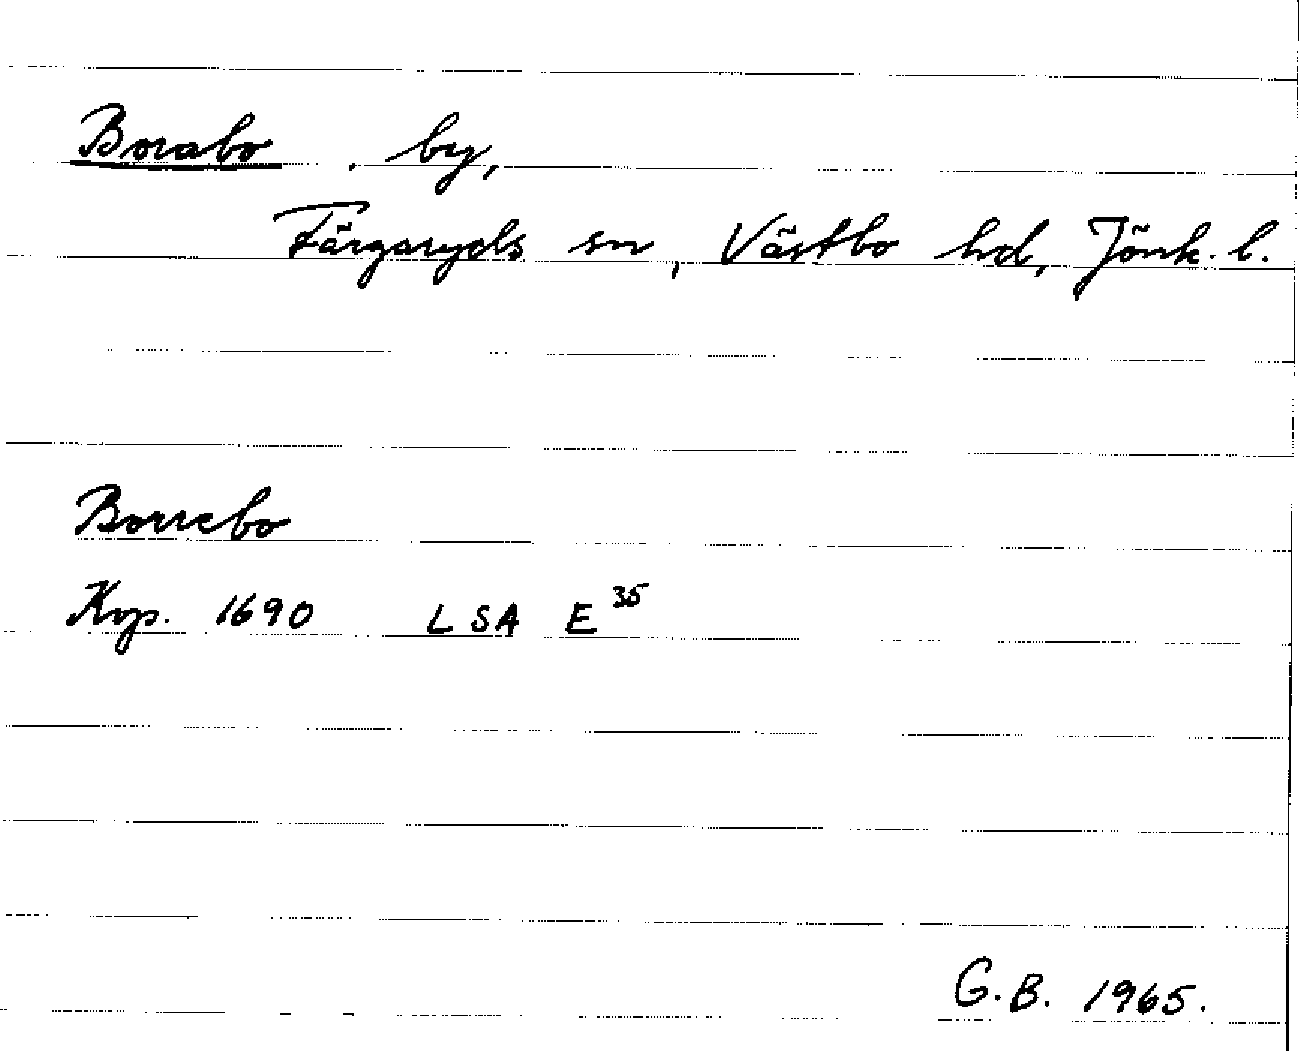 Borabo, by,
Färgaryds sn, Västbo hd, Jönk. l.
Borrebo
Kop. 1690 LSA E 35
G.B. 1965.